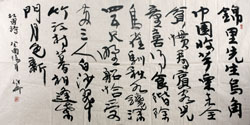 錦里先生烏角
巾園收芋栗未全
貧慣看賓客兒
童喜得食階除
鳥雀馴秋水纔深
四五尺野航恰受
兩三人白沙翠
竹江村暮相送柴
門月色新